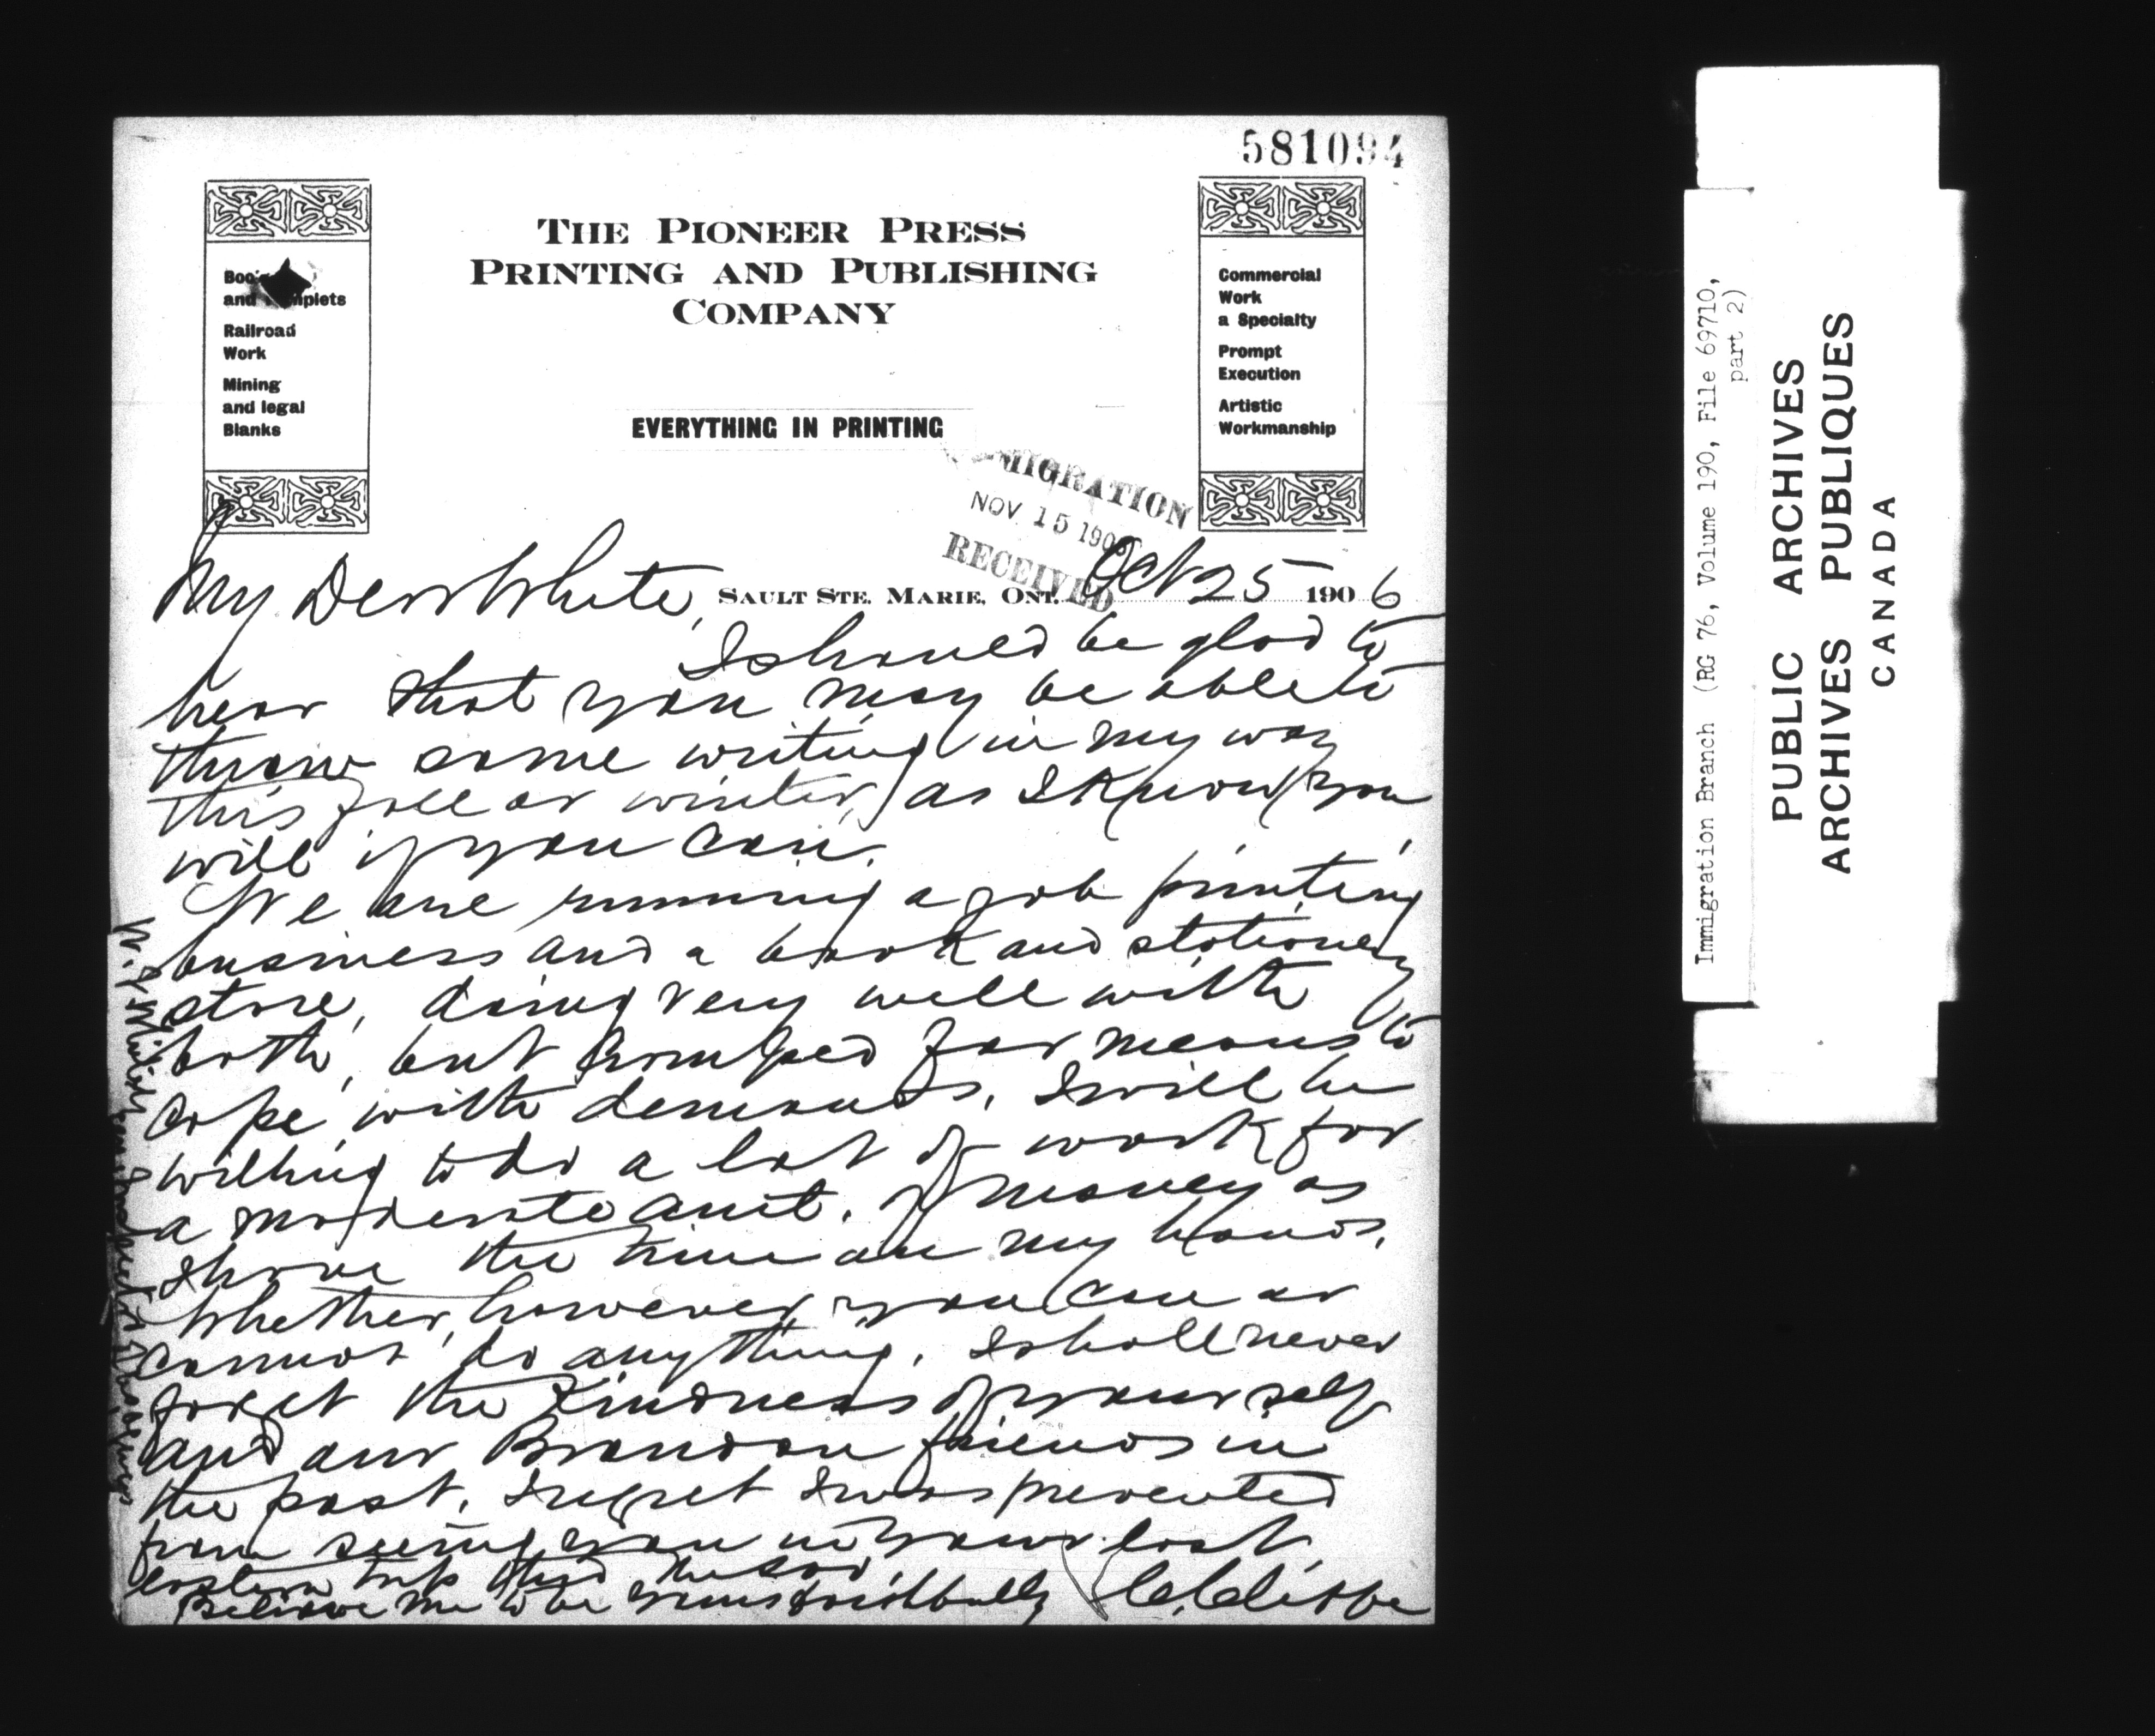 581094
THE PIONEER PRESS
PRINTING AND PUBLISHING
COMPANY
EVERYTHING IN PRINTING
and
Railroad
Work
Mining
and legal
Blanks
Commercial
Work
a Specialty
Prompt
Execution
Artistic
Workmanship
IMMIGRATION
NOV 15 190
RECEIVED
SAULT STE. MARIE, ONT. Oct 25 1906
My Dear White,
I should be glad to
hear that you may be able to
throw some writing in my way
this fall or winter, as I know you
will if you can.
We are running a job printing
business and a book and stationery
store, doing very well with
both, but for means to
cope with demands. I will be
willing to do a lot of work for
a moderate amt. of money as
I have the time on my hands.
Whether, however, you can or
cannot do anything, I shall never
forget the kindness of yourself
and our Brandon friends in
the past. I regret I was prevented
from seeing you in your last
eastern trip
Believe me to be yours faithfully C. Cliffe
Immigration Branch (RG 76, Volume 190, File 69710,
part 2)
PUBLIC ARCHIVES
ARCHIVES PUBLIQUES
CANADA